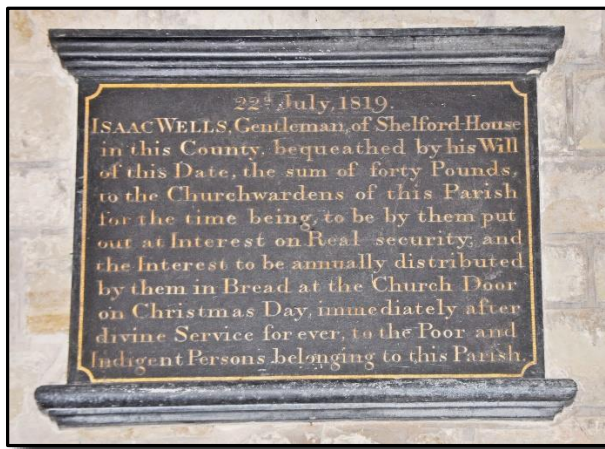 22d July, 1819.
ISAAC WELLS, Gentleman, of Shelford House
in this County, bequeathed by his Will
of this Date, the sum of forty Pounds,
to the Churchwardens of this Parish
for the time being, to be by them put
out at Interest on Real security; and
the Interest to be annually distributed
by them in Bread at the Church Door
on Christmas Day, immediately after
divine Service for ever, to the Poor and
Indigent Persons belonging to this Parish.